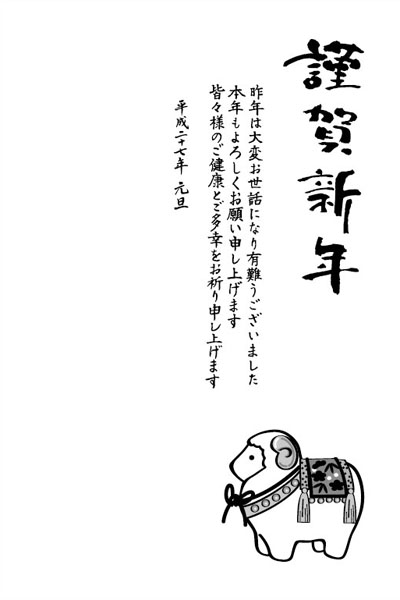 謹賀新年
昨年は大変お世話になり有難うございました
本年もよろしくお願い申し上げます
皆々様のご健康とご多幸をお祈り申し上げます
平成二十七年 元旦